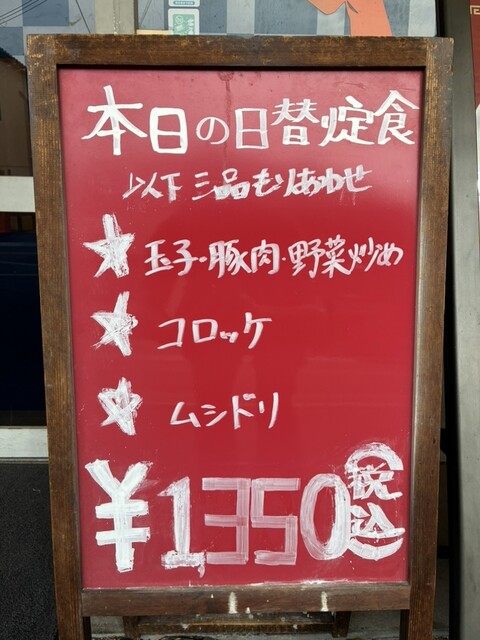 本日の日替定食
以下三品もりあわせ
☆ 玉子・豚肉・野菜炒め
☆ コロッケ
☆ ムシドリ
¥1,350 税込